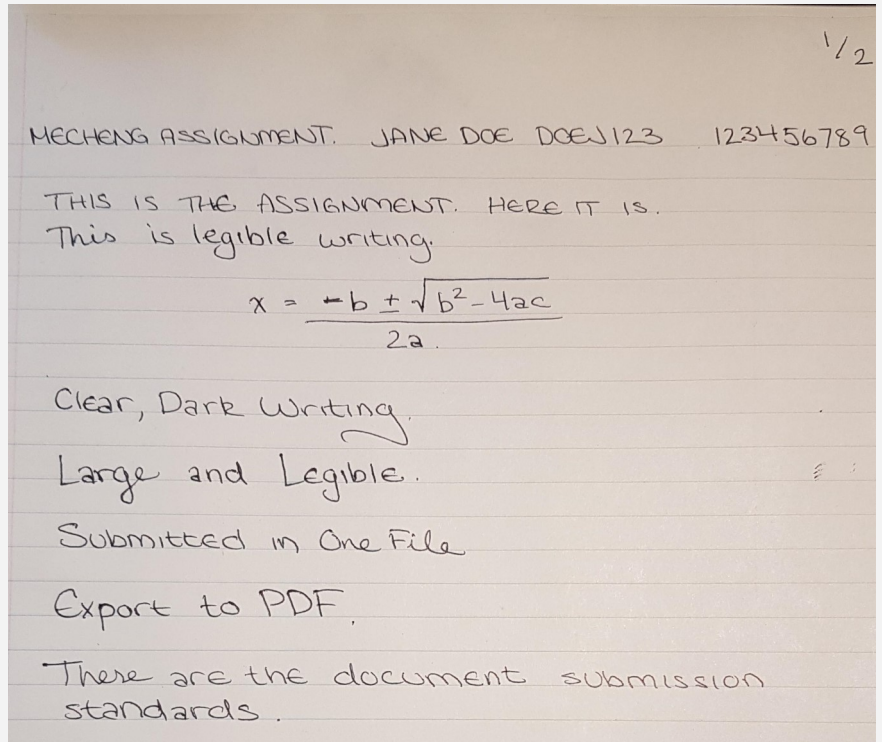 1/2
MECHENG ASSIGNMENT. JANE DOE DOEJ123 123456789
THIS IS THE ASSIGNMENT. HERE IT IS.
This is legible writing.
x = -b ± √b² - 4ac
2a.
Clear, Dark Writing.
Large and Legible.
Submitted in One File
Export to PDF.
There are the document submission
standards.